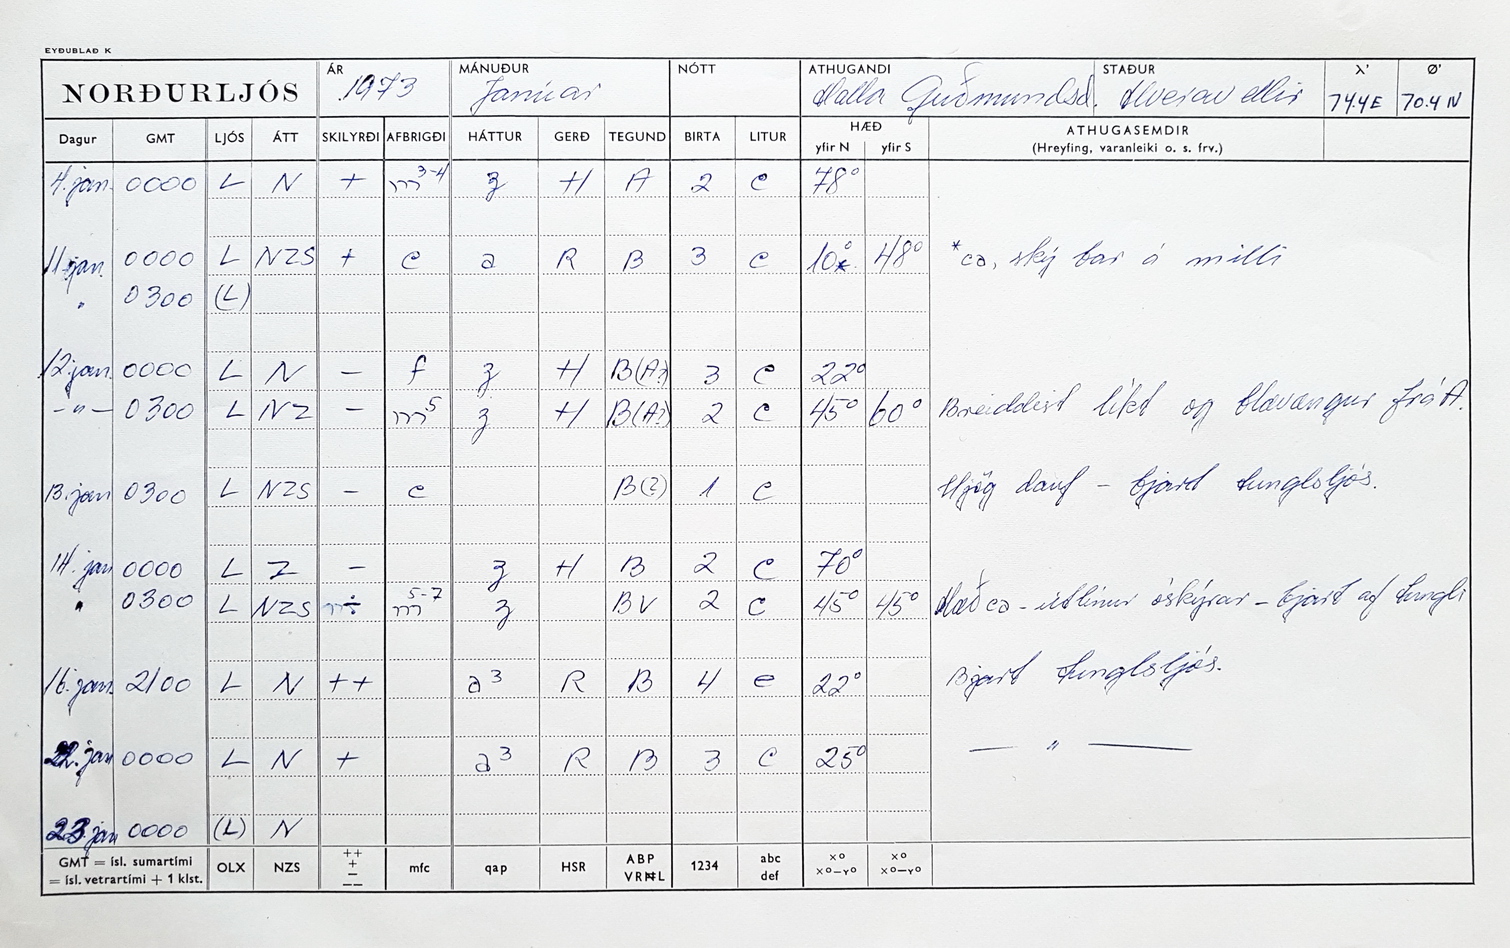 EYÐUBLAÐ K
NORÐURLJÓS ÁR 1973 MÁNUÐUR Janúar NÓTT ATHUGANDI Halla Guðmundsd. STAÐUR Hveravellir λ' 74.4E Ø' 70.4 N
Dagur GMT LJÓS ÁTT SKILYRÐI AFBRIGÐI HÁTTUR GERÐ TEGUND BIRTA LITUR HÆÐ yfir N yfir S ATHUGASEMDIR
(Hreyfing, varanleiki o. s. frv.)
4. jan. 0000 L N + m3-4 z H A 2 c 78°
11. jan. 0000 L NZS + c a R B 3 c 10°* 48° *ca, ský bar á milli
" 0300 (L)
12. jan. 0000 L N - f z H B(A?) 3 c 22°
-"- 0300 L NZ - m5 z H B(A?) 2 c 45° 60° Breiddist líkt og blævængur frá A.
13. jan 0300 L NZS - c B(?) 1 c Mjög dauf - bjart tunglsljós.
14. jan 0000 L Z - z H B 2 c 70°
" 0300 L NZS ÷ m5-7 z BV 2 c 45° 45° Hæð ca - útlínur óskýrar - bjart af tungli
16. jan. 2100 L N ++ a3 R B 4 e 22° Bjart tunglsljós.
22. jan 0000 L N + a3 R B 3 c 25° — " —
23. jan 0000 (L) N
GMT = ísl. sumartími
= ísl. vetrartími + 1 klst. OLX NZS ++ + - -- mfc qap HSR ABP VRNL 1234 abc def x° x°-y° x° x°-y°